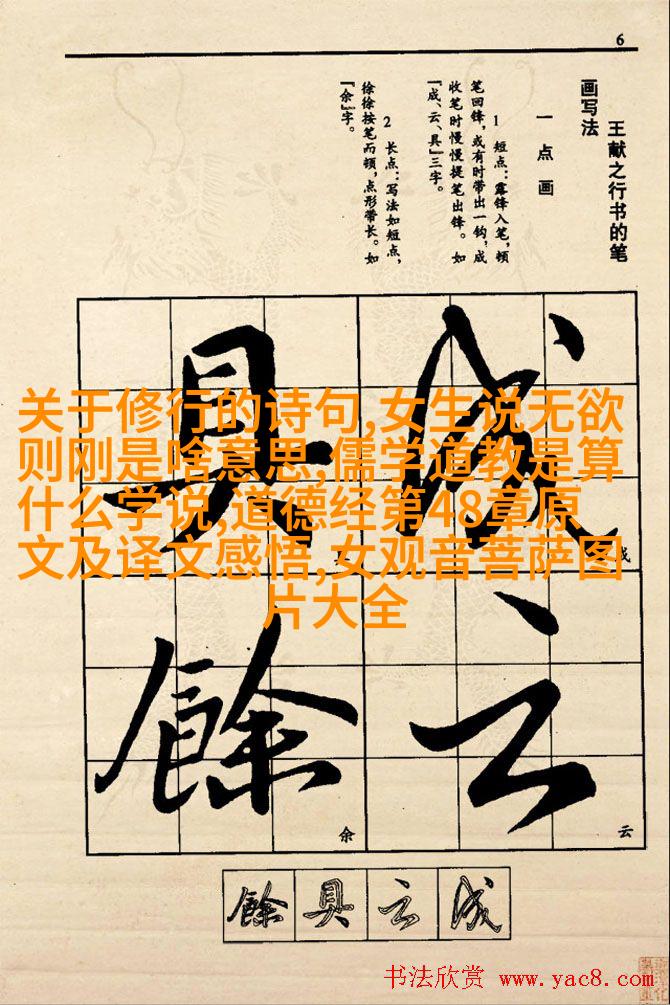 6
王献之行书的笔
画写法
一 点 画
1 短点：露锋入笔，顿
笔回锋，或有时带出一钩，成
收笔时慢慢提笔出锋。如
『成、云、具』三字。
2 长点：写法如短点，
徐徐按笔而顿，点形带长。如
『余』字。
成
成
云
云
具
餘
余
关于修行的诗句,女生说无欲
则刚是啥意思,儒学道教是算
什么学说,道德经第48章原
文及译文感悟,女观音菩萨图
片大全
餘具云成
书法欣赏 www.yac8.com